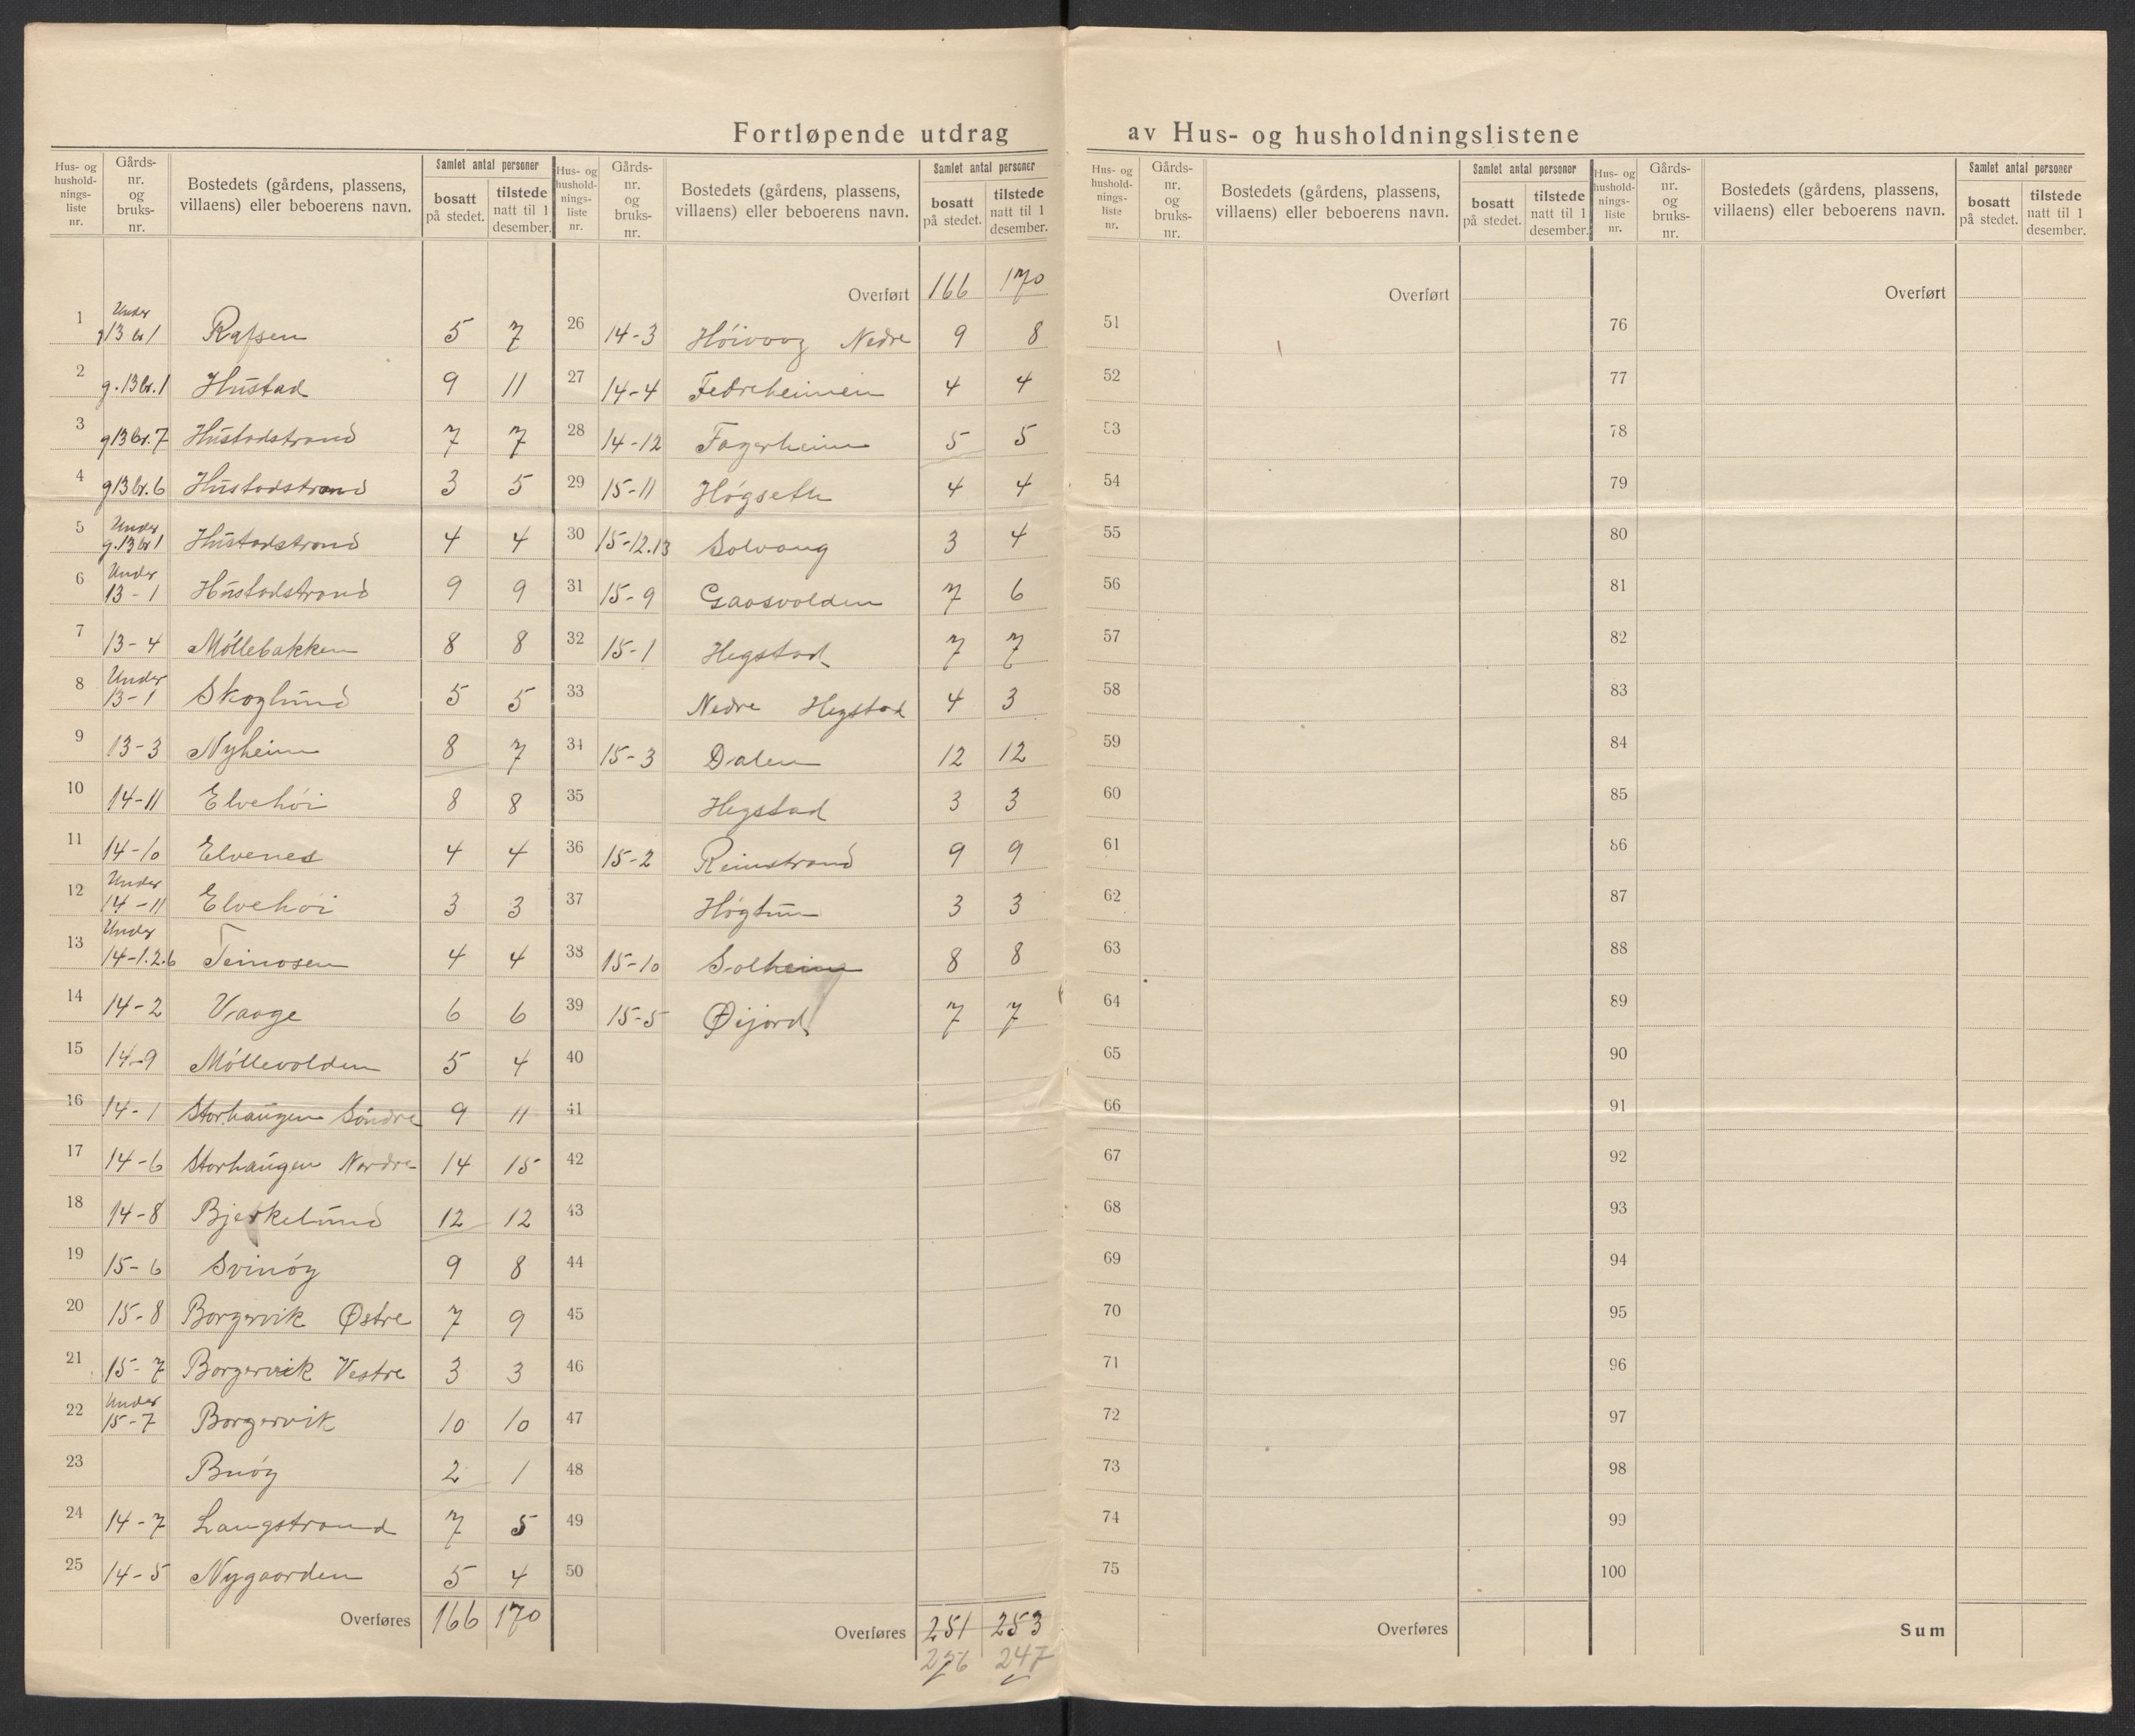 Fortløpende utdrag av Hus- og husholdningslistene
Hus- og hushold-nings-liste nr. | Gårds-nr. og bruks-nr. | Bostedets (gårdens, plassens, villaens) eller beboerens navn. | Samlet antal personer | bosatt på stedet. | tilstede natt til 1 desember.
1 Under g13 br1 Rafsen 5 7
2 g.13 br.1 Hustad 9 11
3 g13 br.7 Hustadstrand 7 7
4 g13 br.6 Hustadstrand 3 5
5 Under g.13 br1 Hustadstrand 4 4
6 Under 13-1 Hustadstrand 9 9
7 13-4 Möllebakken 8 8
8 Under 13-1 Skoglund 5 5
9 13-3 Nyheim 8 7
10 14-11 Elvehöi 8 8
11 14-10 Elvenes 4 4
12 Under 14-11 Elvehöi 3 3
13 Under 14-1.2.6 Teinosen 4 4
14 14-2 Vaage 6 6
15 14-9 Möllevolden 5 4
16 14-1 Storhaugen Söndre 9 11
17 14-6 Storhaugen Nordre 14 15
18 14-8 Bjerkelund 12 12
19 15-6 Svinöy 9 8
20 15-8 Borgervik Østre 7 9
21 15-7 Borgervik Vestre 3 3
22 Under 15-7 Borgervik 10 10
23 Buöy 2 1
24 14-7 Langstrand 7 5
25 14-5 Nygaarden 5 4
Overføres 166 170
Hus- og hushold-nings-liste nr. | Gårds-nr. og bruks-nr. | Bostedets (gårdens, plassens, villaens) eller beboerens navn. | Samlet antal personer | bosatt på stedet. | tilstede natt til 1 desember.
Overført 166 170
26 14-3 Höivaag Nedre 9 8
27 14-4 Fedreheimen 4 4
28 14-12 Fagerheim 5 5
29 15-11 Högseth 4 4
30 15-12.13 Solvang 3 4
31 15-9 Gaasvolden 7 6
32 15-1 Hegstad 7 7
33 Nedre Hegstad 4 3
34 15-3 Dalen 12 12
35 Hegstad 3 3
36 15-2 Reinstrand 9 9
37 Högtun 3 3
38 15-10 Solheim 8 8
39 15-5 Øijord 7 7
40
41
42
43
44
45
46
47
48
49
50
Overføres 251 253
247
Hus- og hushold-nings-liste nr. | Gårds-nr. og bruks-nr. | Bostedets (gårdens, plassens, villaens) eller beboerens navn. | Samlet antal personer | bosatt på stedet. | tilstede natt til 1 desember.
Overført
51
52
53
54
55
56
57
58
59
60
61
62
63
64
65
66
67
68
69
70
71
72
73
74
75
Overføres
Hus- og hushold-nings-liste nr. | Gårds-nr. og bruks-nr. | Bostedets (gårdens, plassens, villaens) eller beboerens navn. | Samlet antal personer | bosatt på stedet. | tilstede natt til 1 desember.
Overført
76
77
78
79
80
81
82
83
84
85
86
87
88
89
90
91
92
93
94
95
96
97
98
99
100
Sum